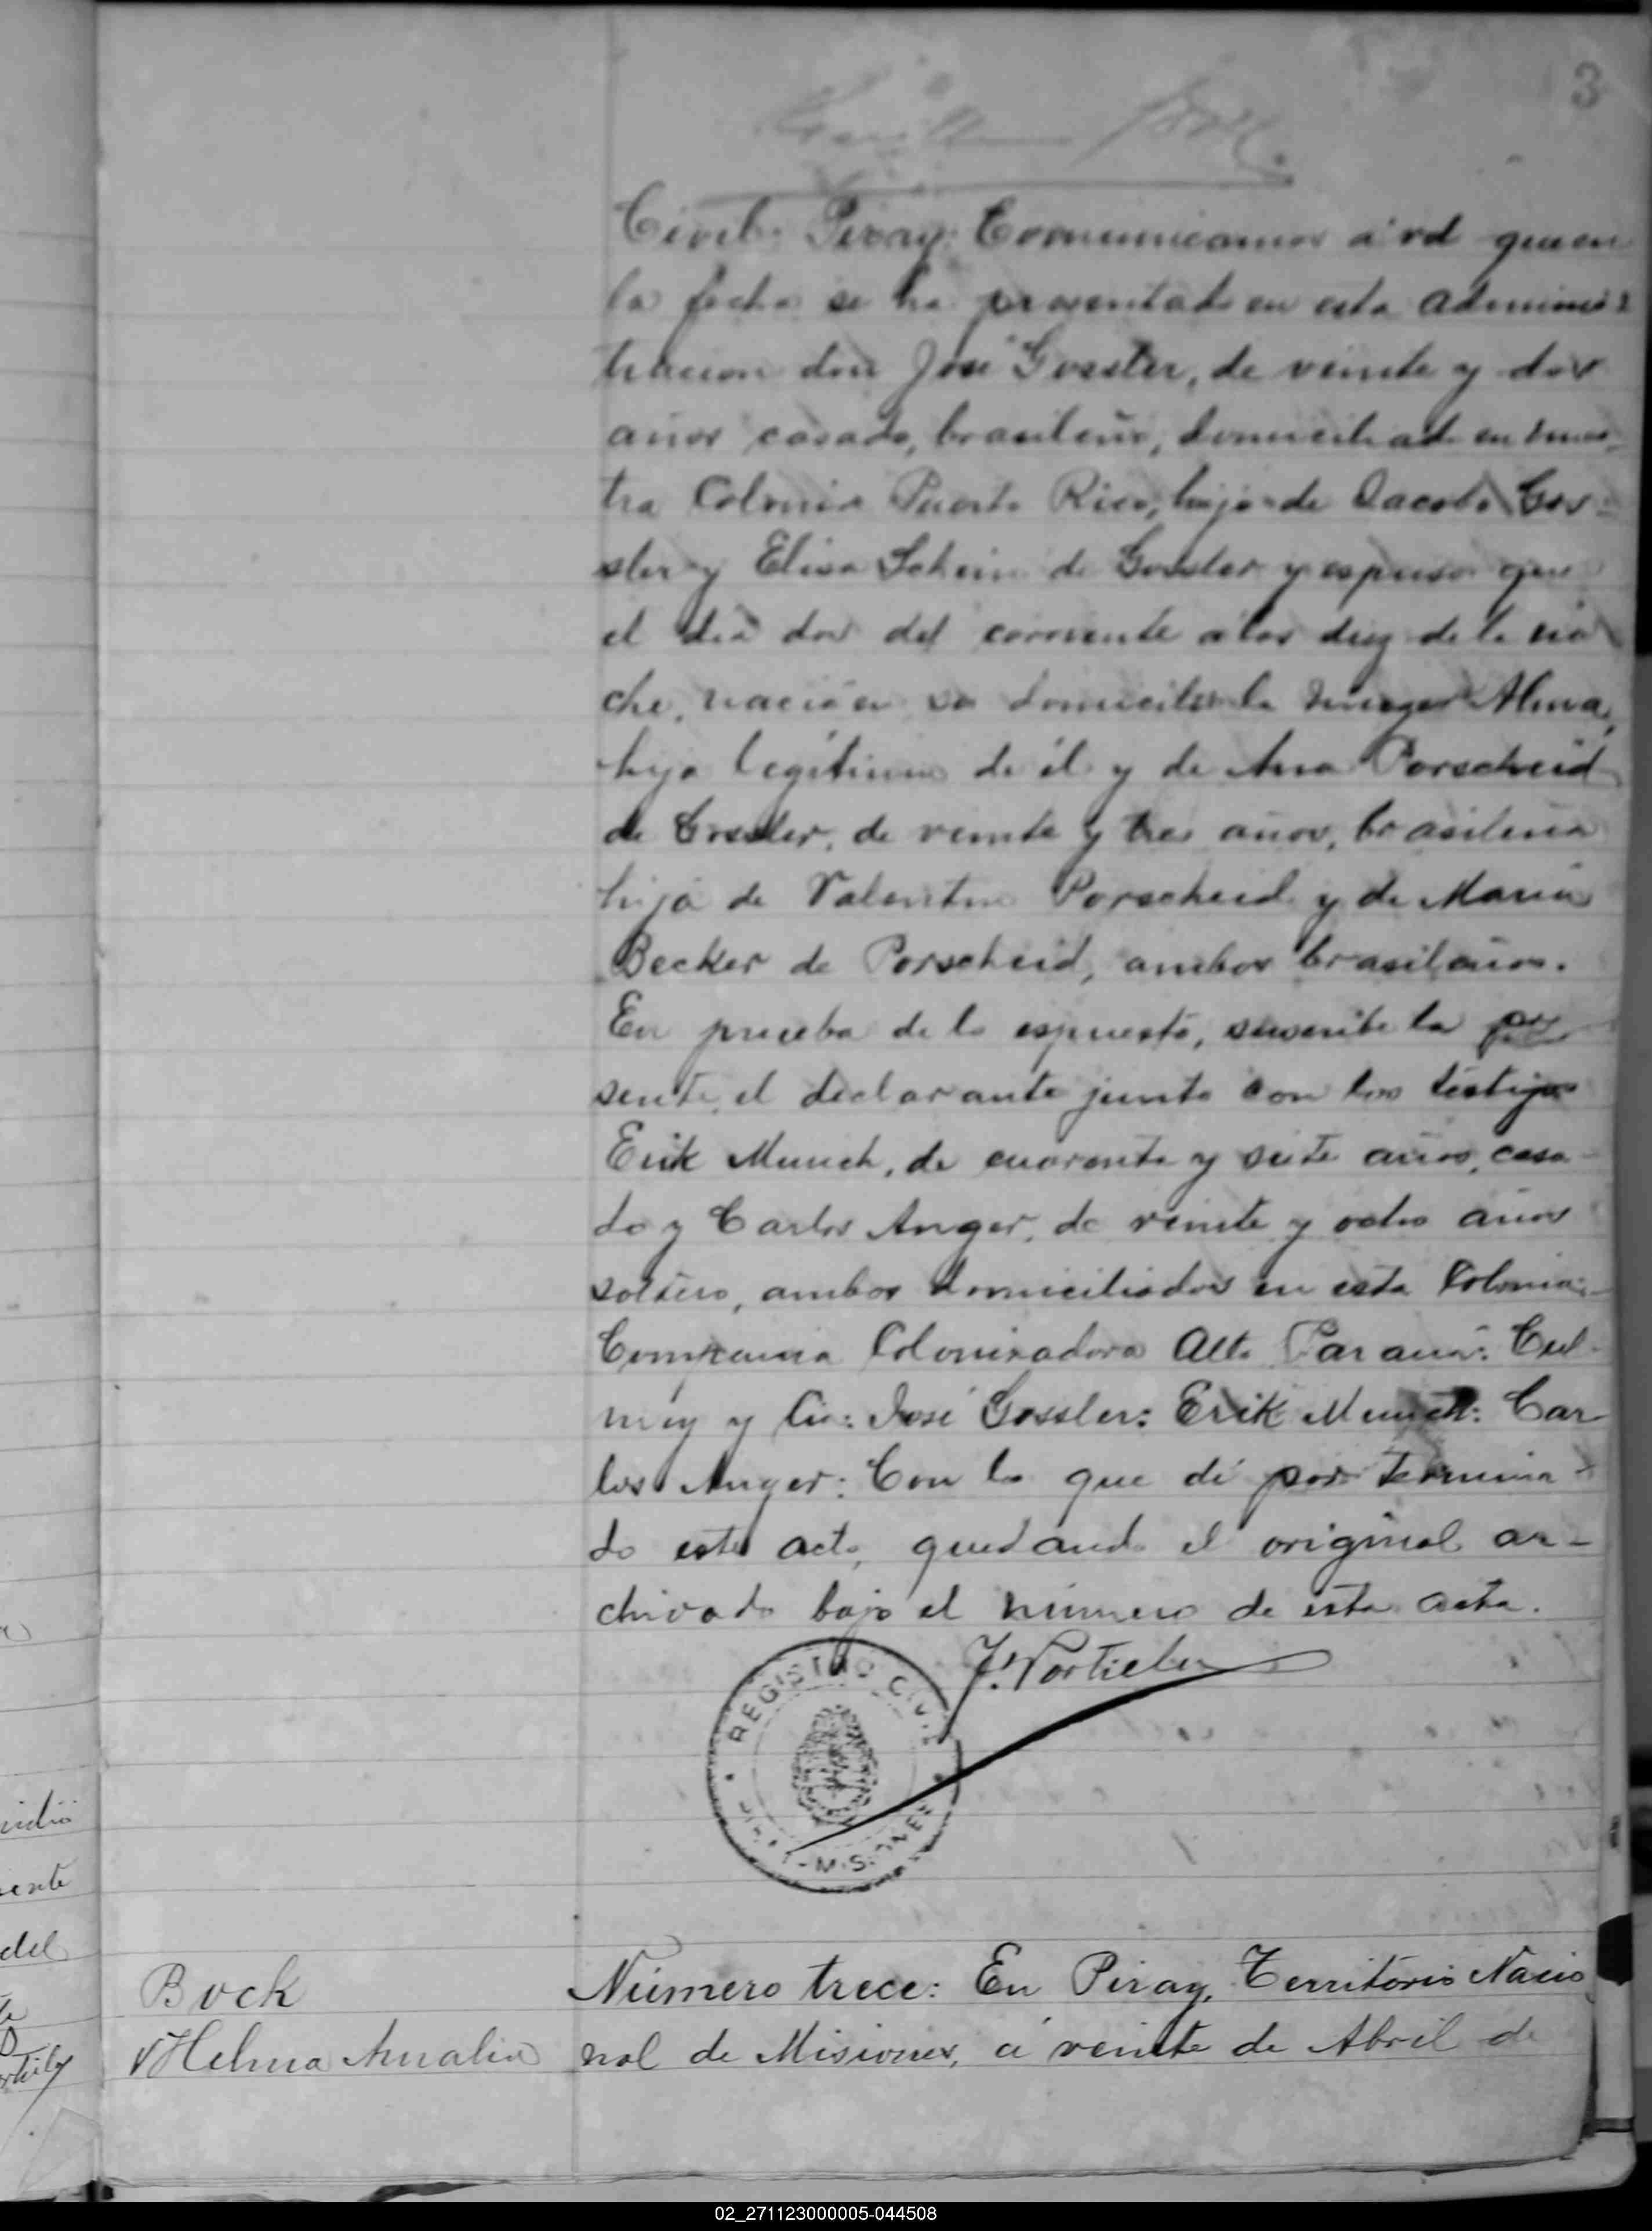 3
Civil: Piray: Comunicamos á vd que en
la fecha se ha presentado en esta adminis
tracion don José Gossler, de veinte y dos
años casado, brasileño, domiciliado en nues
tra Colonia Puerto Rico, hijo de Jacobo Gos-
sler y Elisa Schein de Gossler y espuso que
el dia dos del corriente á las diez de la no
che, nació en su domicilio la muger Alma,
hija legítima de él y de Ana Porscheid
de Gossler, de veinte y tres años, brasileña
hija de Valentin Porscheid y de Maria
Becker de Porscheid, ambos brasileños.
En prueba de lo espuesto, suscribe la pre
sente, el declarante junto con los testigos
Erik Munch, de cuarenta y siete años, casa-
do y Carlos Anger, de veinte y ocho años
soltero, ambos domiciliados en esta Colonia:-
Compañia Colonizadora Alto Paraná: Cul-
mey y Cia: José Gossler: Erik Munch: Car
los Anger: Con lo que dí por termina-
do este acto, quedando el original ar-
chivado bajo el número de esta acta.
J. Portielu
REGISTRO CIVIL
MISIONES
Bock
Helma Amalia
Número trece: En Piray, Territorio Nacio
nal de Misiones, á veinte de Abril de
ente
del
02_271123000005-044508